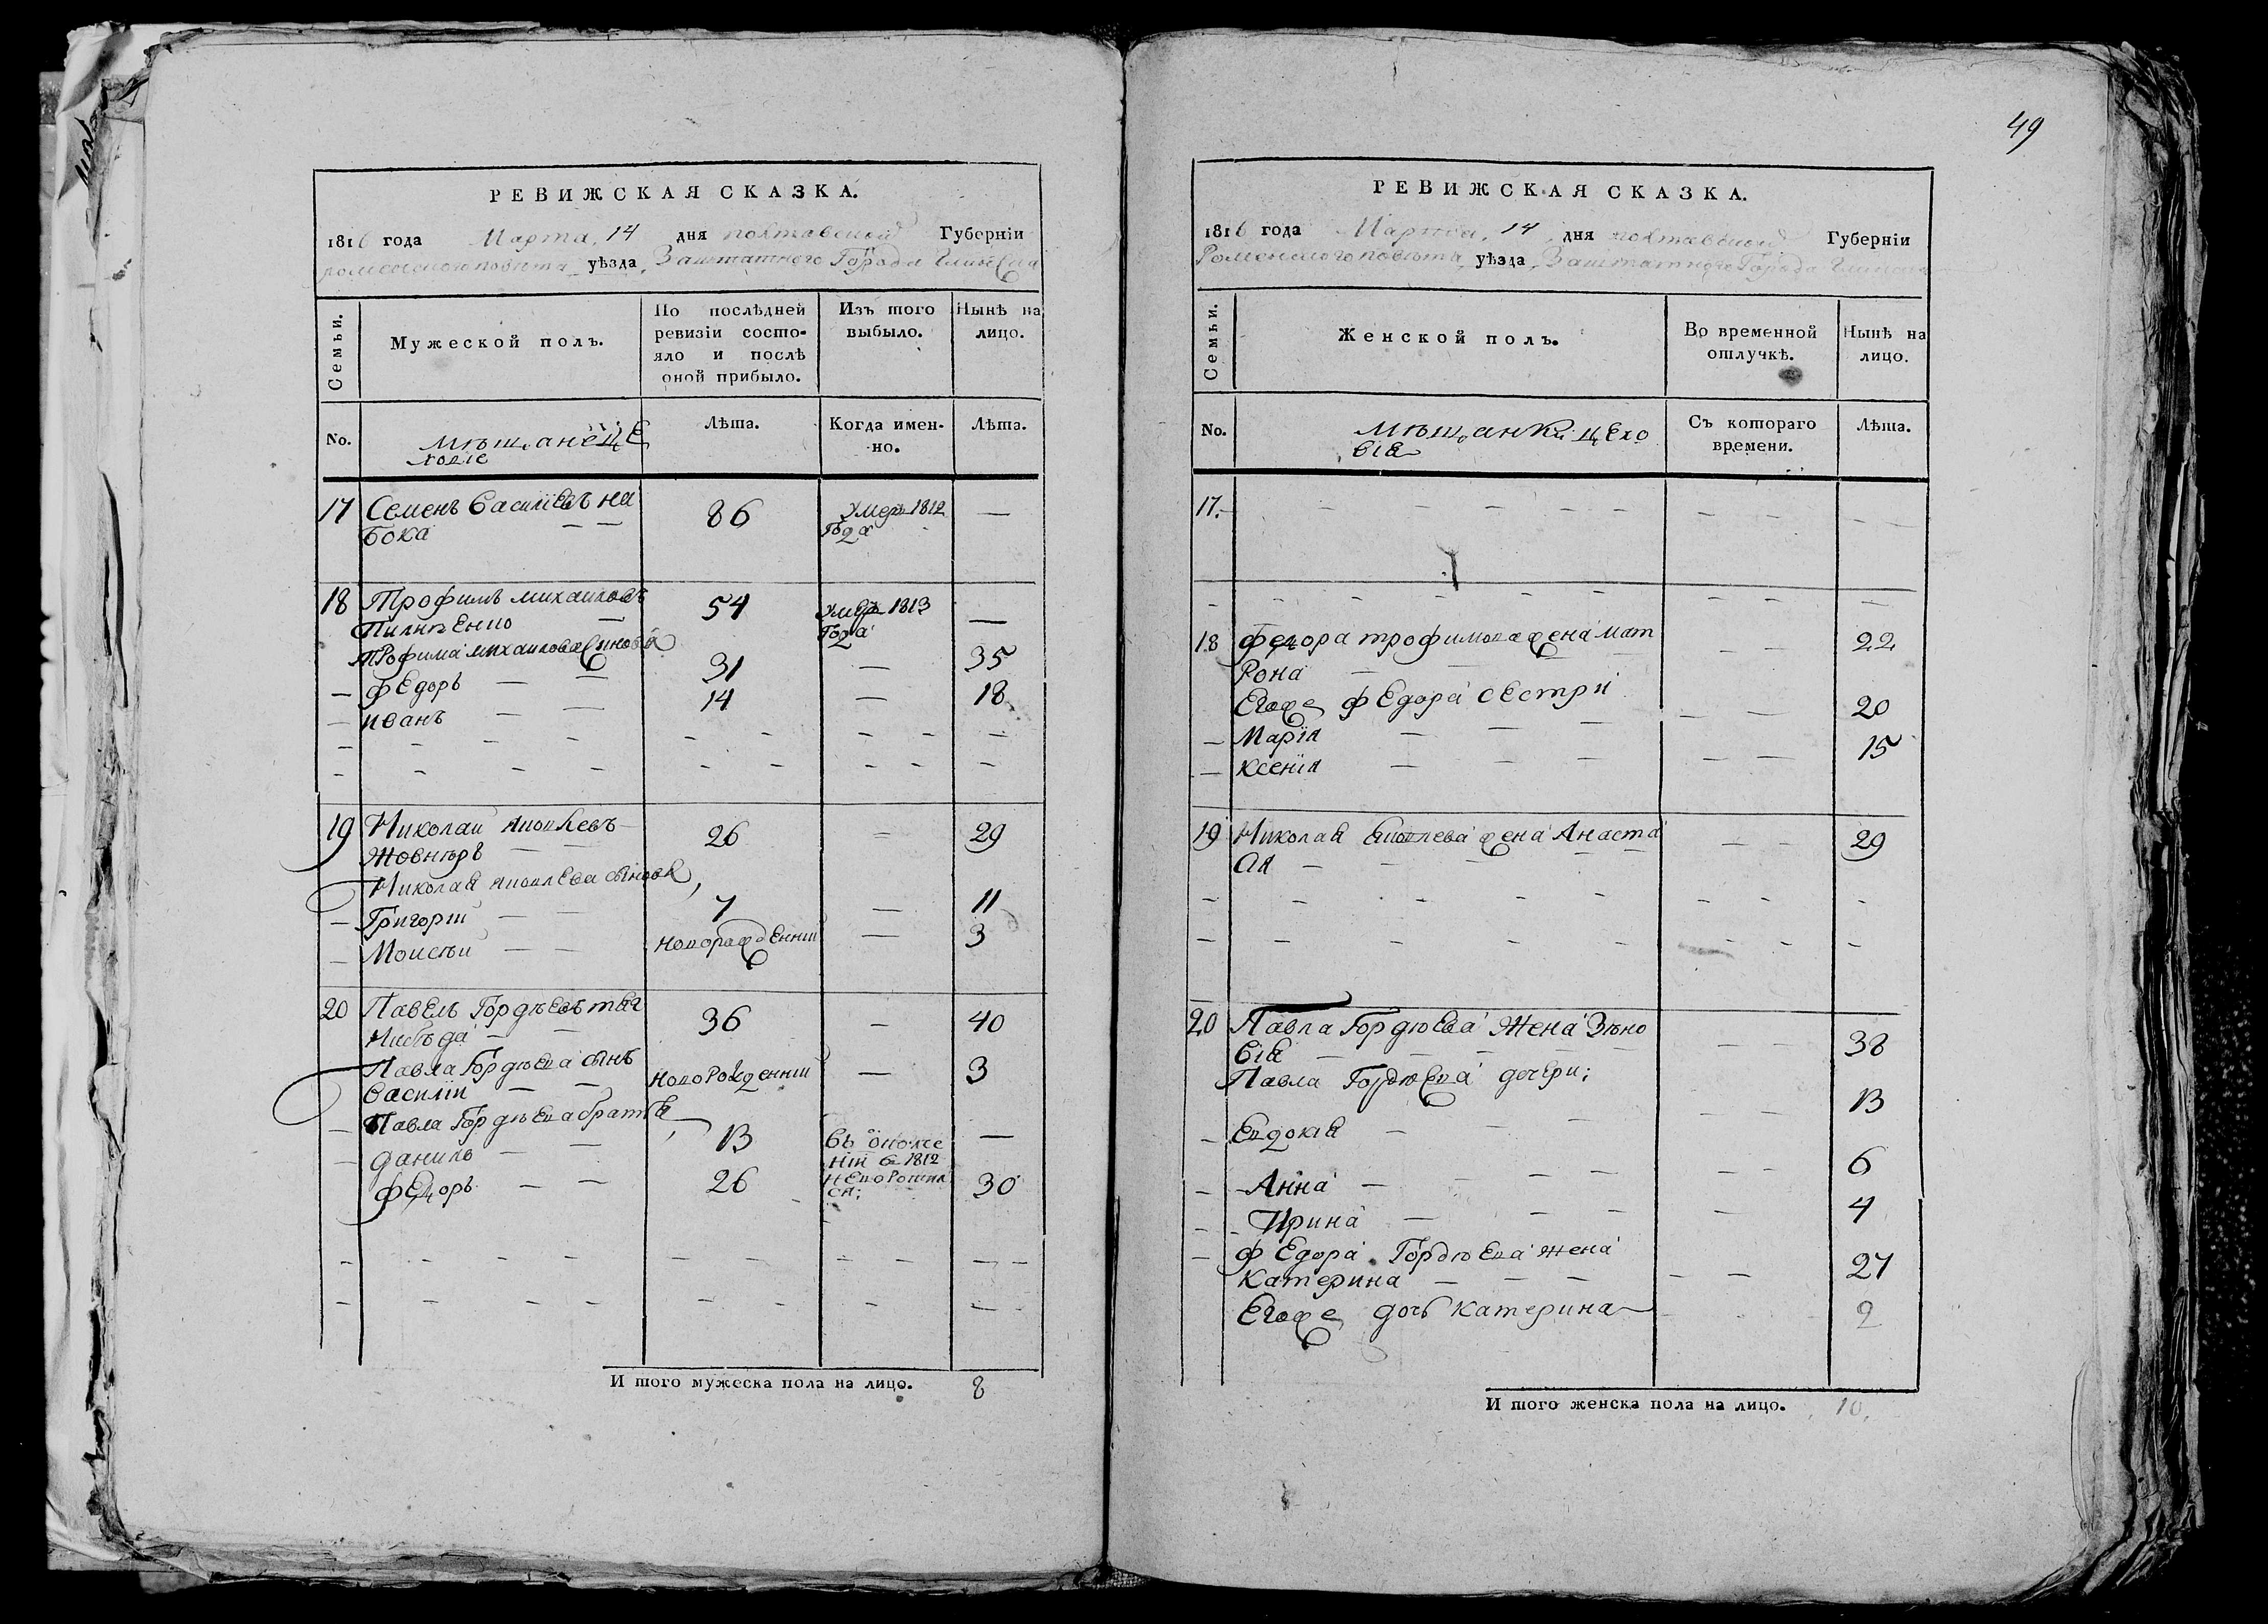 РЕВИЖСКАЯ СКАЗКА.
1816 года Марта, 14 дня полтавской Губерніи
роменского повѣта уѣзда, Заштатного Города Глинска
Семьи.
Мужеской полъ.
По послѣдней ревизіи состояло и послѣ оной прибыло.
Изъ того выбыло.
Нынѣ на лицо.
No.
мѣщане це
ховіе
Лѣта.
Когда именно.
Лѣта.
17 Семенъ Василіевъ на 86 Умеръ 1812 —
бока — — Года
18 Трофимъ михаиловъ 54 умеръ 1813 —
Пилипенко — Года
Трофима михаилова синовя
— федоръ — — 31 — 35
— иванъ — — 14 — 18
19 Николаи яковлевъ 26 — 29
Жовнѣръ — —
Николая яковлева синовя
— Григории — — 7 — 11
— Моисѣи — — новорожденни — 3
20 Павелъ Гордѣевъ 36 — 40
Павла Гордѣева синъ
Василіи — — новорожденни — 3
— Павла Гордѣева братя
— данило — — 13 въ ополче —
нии с 1812
федоръ — — 26 невороти 30
ся;
И того мужеска пола на лицо. 8
49
РЕВИЖСКАЯ СКАЗКА.
1816 года Марта, 14 дня полтавской Губерніи
Роменского повѣта, уѣзда, Заштатного Города Глинска
Семьи.
Женской полъ.
Во временной отлучкѣ.
Нынѣ на лицо.
No.
мѣщанки цехо
вія
Съ котораго времени.
Лѣта.
17. — — — — — — — —
18 федора трофимова жена мат — — 22
рона —
Егоже федора сестри
— Марія — — — — — 20
— Ксенія — — — — — 15
19 Николая яковлева жена Анаста — — 29
ия —
20 Павла Гордюева жена Зѣно — — 38
вія
Павла Гордюева дочери;
— Евдокия — — — — 13
— Анна — — — — 6
— Ирина — — — — 4
— федора Гордюева жена
Катерина — — — — — 27
Егоже дочь катерина 2
И того женска пола на лицо. 10.